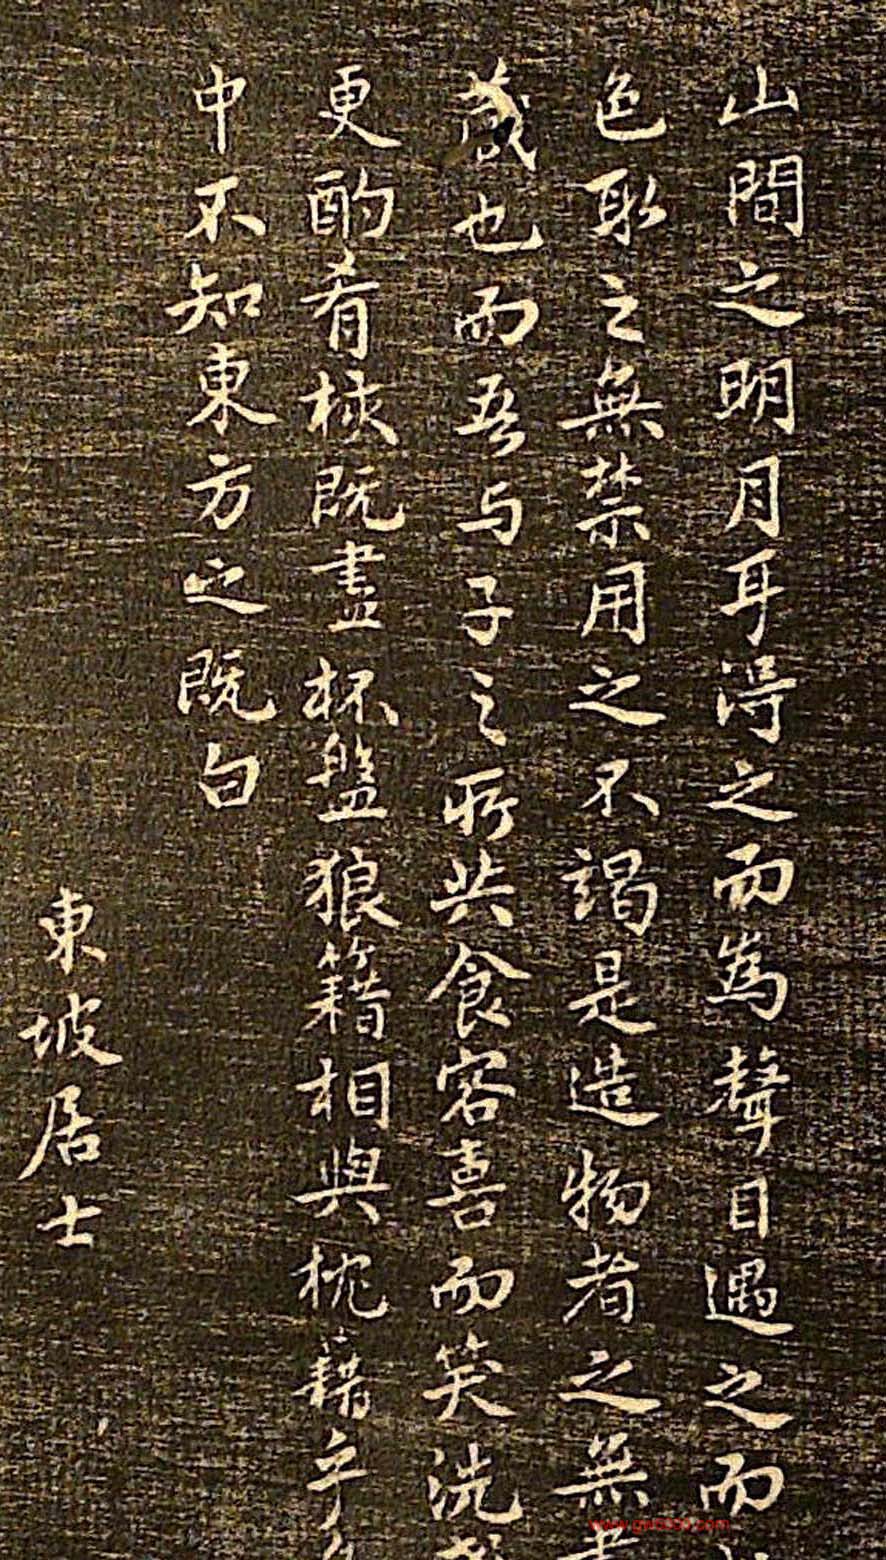 山間之明月耳得之而為聲目遇之而
色取之無禁用之不竭是造物者之無
藏也而吾与子之所共食客喜而笑洗
更酌肴核既盡杯盤狼籍相與枕藉乎
中不知東方之既白
東坡居士